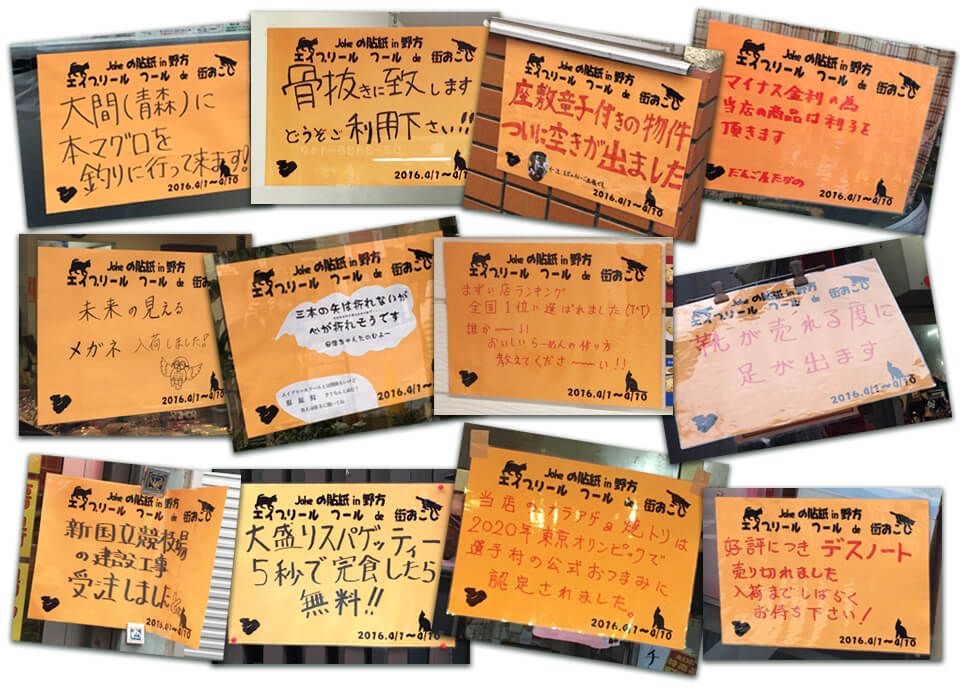 Jokeの貼紙in野方
エイプリール フール de 街おこし
大間(青森)に
本マグロを
釣りに行って来ます!
2016.4/1〜4/10
Jokeの貼紙in野方
エイプリール フール de 街おこし
骨抜きに致します
どうぞご利用下さい!!
2016.4/1〜4/10
Jokeの貼紙in野方
エイプリール フール de 街おこし
座敷童子付きの物件
ついに空きが出ました
2016.4/1〜4/10
Jokeの貼紙in野方
エイプリール フール de 街おこし
マイナス金利の為
当店の商品は利子を
頂きます
だんご屋たかの
2016.4/1〜4/10
Jokeの貼紙in野方
エイプリール フール de 街おこし
未来の見える
メガネ 入荷しました!!
2016.4/1〜4/10
Jokeの貼紙in野方
エイプリール フール de 街おこし
三本の矢は折れないが
心が折れそうです
2016.4/1〜4/10
Jokeの貼紙in野方
エイプリール フール de 街おこし
まずい店ランキング
全国1位に選ばれました(T・T)
誰か〜!!
おいしいらーめんの作り方
教えてくださ〜い!!
2016.4/1〜4/10
Jokeの貼紙in野方
エイプリール フール de 街おこし
靴が売れる度に
足が出ます
2016.4/1〜4/10
Jokeの貼紙in野方
エイプリール フール de 街おこし
新国立競技場
の建設工事
受注しました
2016.4/1〜4/10
Jokeの貼紙in野方
エイプリール フール de 街おこし
大盛りスパゲッティー
5秒で完食したら
無料!!
2016.4/1〜4/10
Jokeの貼紙in野方
エイプリール フール de 街おこし
当店のカラアゲ&焼トリは
2020年東京オリンピックで
選手村の公式おつまみに
認定されました。
2016.4/1〜4/10
Jokeの貼紙in野方
エイプリール フール de 街おこし
好評につき デスノート
売り切れました
入荷までしばらく
お待ち下さい!
2016.4/1〜4/10